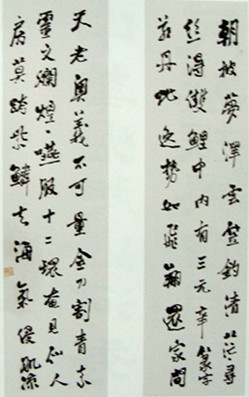 朝披夢澤雲笠釣清茫茫尋
絲得雙鯉中內有三元章篆字
若丹蛇逸勢如飛翔還家問
天老奧義不可量金刀割青素
靈文爛煌煌嚥服十二環奄見仙人
房莫跨紫鱗去海氣侵肌涼